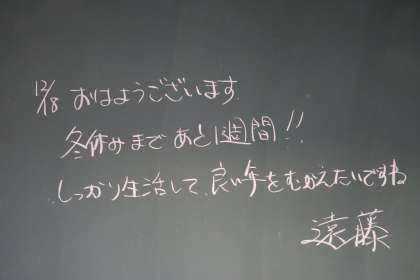 12/18 おはようございます。
冬休みまであと1週間!!
しっかり生活して、良い年をむかえたいですね
遠藤